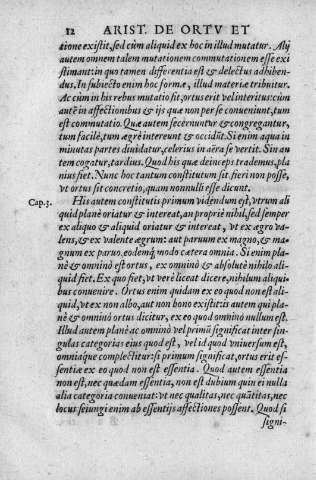 12 ARIST. DE ORTV ET
tione existit, sed cùm aliquid ex hoc in illud mutatur. Alij
autem omnem talem mutationem commutationem esse exi
stimant: in quo tamen differentia est & delectus adhiben-
dus. In subiecto enim hoc formæ, illud materiæ tribuitur.
Ac cùm in his rebus mutatio sit, ortus erit vel interitus: cùm
autē in affectionibus & ijs quæ non per se conueniunt, tum
est commutatio. Quæ autem secernuntur & congregantur,
tum facilè, tum ægrè intereunt & occidūt. Si enim aqua in
minutas partes diuidatur, celerius in aëra se vertit. Sin au
tem cogatur, tardius. Quod his quæ deinceps trademus, pla
nius fiet. Nunc hoc tantum constitutum sit, fieri non posse,
vt ortus sit concretio, quam nonnulli esse dicunt.
Cap.3. His autem constitutis primùm videndum est, vtrum ali
quid planè oriatur & intereat, an propriè nihil, sed semper
ex aliquo & aliquid oriatur & intereat, vt ex ægro va-
lens, & ex valente ægrum: aut paruum ex magno, & ma-
gnum ex paruo, eodemq́; modo cætera omnia. Si enim pla-
nè & omninò est ortus, ex omninò & absolutè nihilo ali-
quid fiet. Ex quo fiet, vt verè liceat dicere, nihilum aliqui-
bus conuenire. Ortus enim quidam ex eo quod non est ali-
quid, vt ex non albo, aut non bono existit: is autem qui pla-
nè & omninò ortus dicitur, ex eo quod omninò nullum est.
Illud autem planè ac omninò vel primū significat inter sin-
gulas categorias eius quod est, vel id quod vniuersum est,
omniaq́ue complectitur: si primum significat, ortus erit es-
sentiæ ex eo quod non est essentia. Quod autem essentia
non est, nec quædam essentia, non est dubium quin ei nulla
alia categoria conueniat: vt nec qualitas, nec quātitas, nec
locus seiungi enim ab essentijs affectiones possent. Quod si
signi-